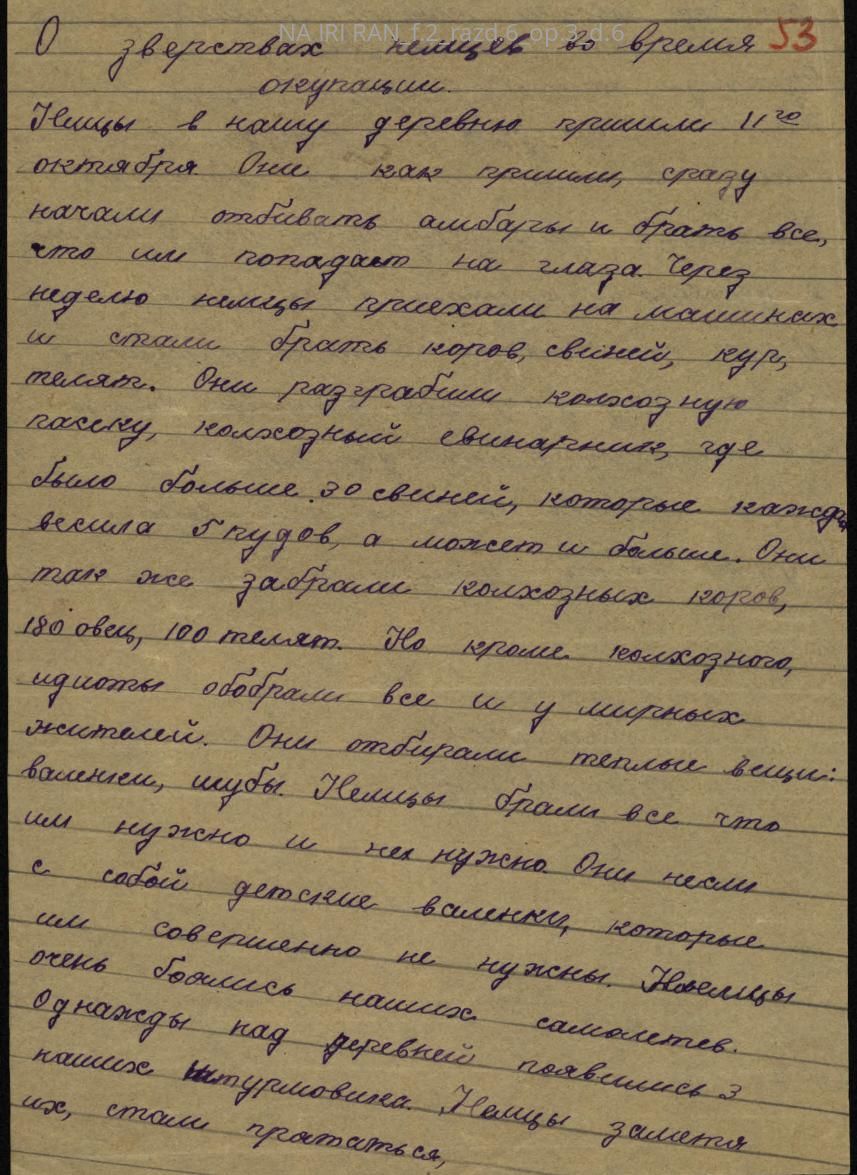 NA IRI RAN_f.2_razd.6_op.3_d.6
53
О зверствах немцев во время
окупации.
Немцы в нашу деревню пришли 11го
октября. Они как пришли, сразу
начали отбивать амбары и брать все,
что им попадает на глаза. Через
неделю немцы приехали на машинах
и стали брать коров, свиней, кур,
телят. Они разграбили колхозную
пасеку, колхозный свинарник, где
было больше 30 свиней, которые кажда
весила 5 пудов, а может и больше. Они
так же забрали колхозных коров,
180 овец, 100 телят. Но кроме колхозного,
идиоты обобрали все и у мирных
жителей. Они отбирали теплые вещи:
валенки, шубы. Немцы брали все что
им нужно и не нужно. Они несли
с собой детские валенки, которые
им совершенно не нужны. Немцы
очень боялись наших самолетев.
Однажды над деревней появились 3
наших штурмовика. Немцы заметя
их, стали прататься,